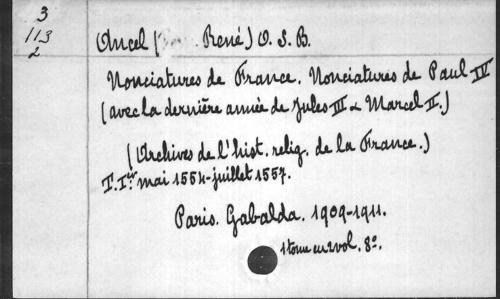 3
113
2
Ancel ( René) O. S. B.
Nonciatures de France. Nonciatures de Paul IV
(avec la dernière année de Jules III & Marcel II.)
(Archives de l'hist. relig. de la France.)
T. Ier mai 1554-juillet 1557.
Paris. Gabalda. 1909-1911.
1 tome en 2 vol. 8º.